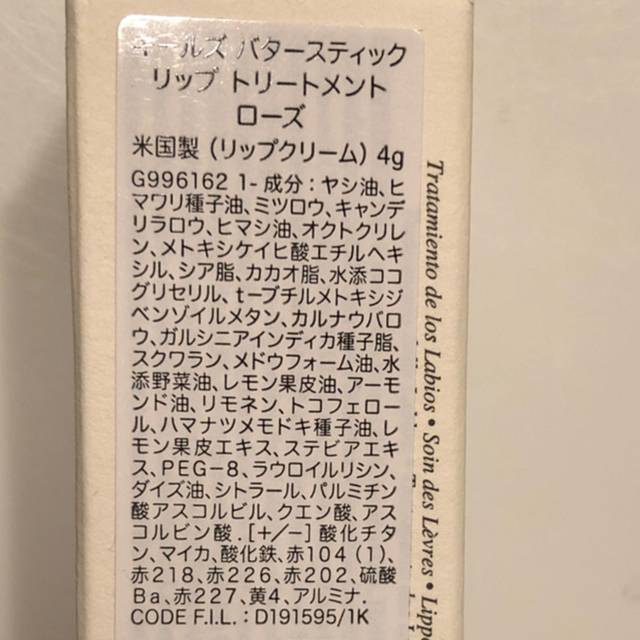 キールズ バタースティック
リップ トリートメント
ローズ
米国製 (リップクリーム) 4g
G996162 1- 成分 : ヤシ油、ヒ
マワリ種子油、ミツロウ、キャンデ
リラロウ、ヒマシ油、オクトクリレ
ン、メトキシケイヒ酸エチルヘキ
シル、シア脂、カカオ脂、水添ココ
グリセリル、t-ブチルメトキシジ
ベンゾイルメタン、カルナウバロ
ウ、ガルシニアインディカ種子脂、
スクワラン、メドウフォーム油、水
添野菜油、レモン果皮油、アーモ
ンド油、リモネン、トコフェロー
ル、ハマナツメモドキ種子油、レ
モン果皮エキス、ステビアエキ
ス、PEG-8、ラウロイルリシン、
ダイズ油、シトラール、パルミチン
酸アスコルビル、クエン酸、アス
コルビン酸 . [+/-] 酸化チタ
ン、マイカ、酸化鉄、赤104 (1)、
赤218、赤226、赤202、硫酸
Ba、赤227、黄4、アルミナ.
CODE F.I.L. : D191595/1K
Tratamiento de los Labios • Soin des Lèvres • Lippe